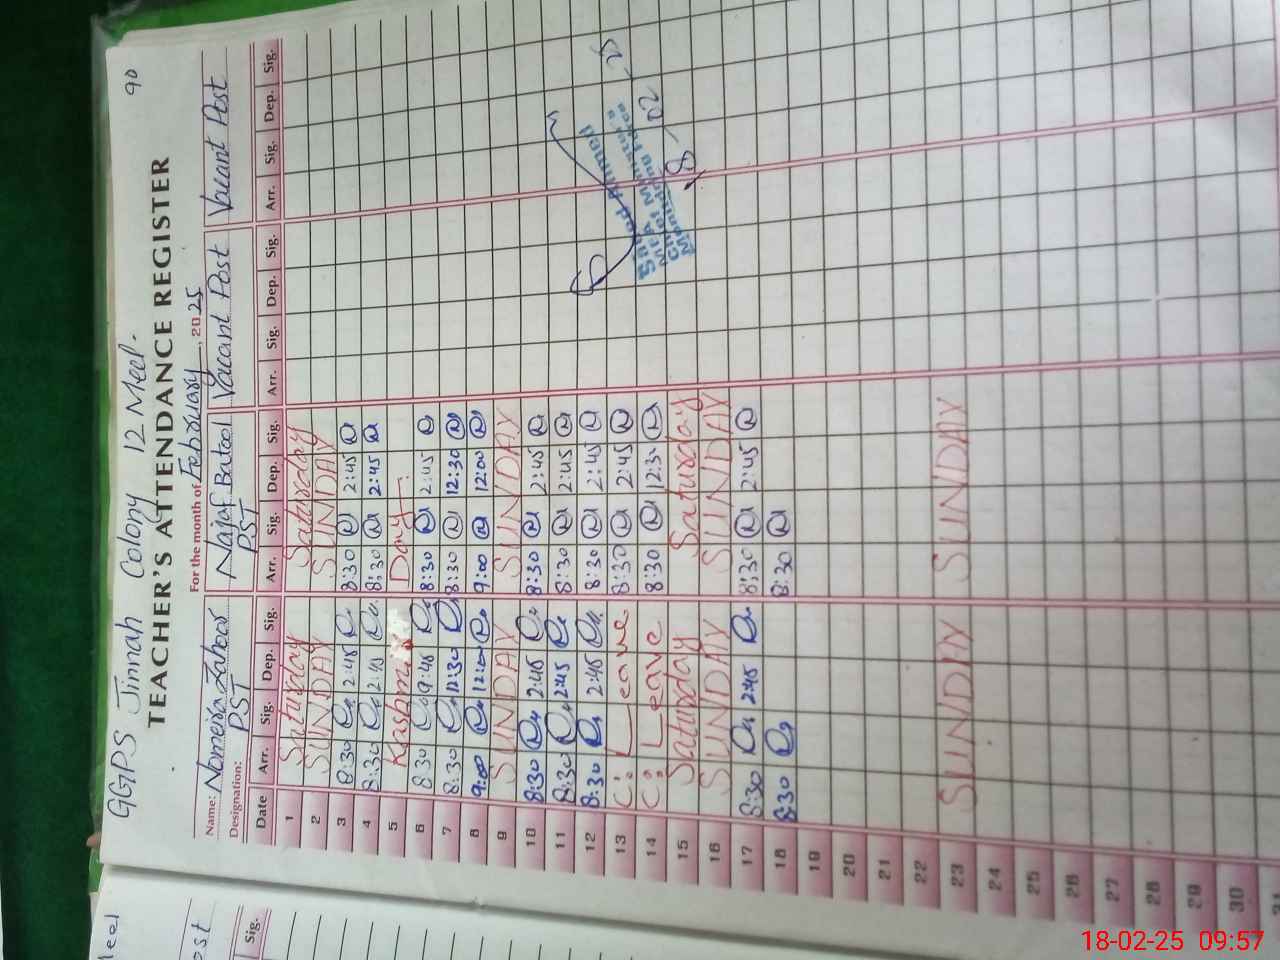 GGPS Jinnah Colony 12 Meel. 90
TEACHER'S ATTENDANCE REGISTER
For the month of February, 2025
Name: Zahoor Najaf Batool Vacant Post Vacant Post
Designation: PST PST
Date Arr. Sig. Dep. Sig. Arr. Sig. Dep. Sig. Arr. Sig. Dep. Sig. Arr. Sig. Dep. Sig.
1 Saturday Saturday
2 SUNDAY SUNDAY
3 8:30 2:45 8:30 2:45
4 8:30 2:45 8:30 2:45
5 Kashmir Day
6 8:30 8:30 2:45
7 8:30 12:30 8:30 12:30
8 9:00 12:00 9:00 12:00
9 SUNDAY SUNDAY
10 8:30 2:45 8:30 2:45
11 8:30 2:45 8:30 2:45
12 8:30 2:45 8:30 2:45
13 C: Leave 8:30 2:45
14 C: Leave 8:30 12:30
15 Saturday Saturday
16 SUNDAY SUNDAY
17 8:30 2:45 8:30 2:45
18 8:30 8:30
19
20
21
22
23 SUNDAY SUNDAY
24
25
26
27
28
29
30
31
Ahmed
MEA
18-02-25
Meel
Post
Sig.
18-02-25 09:57